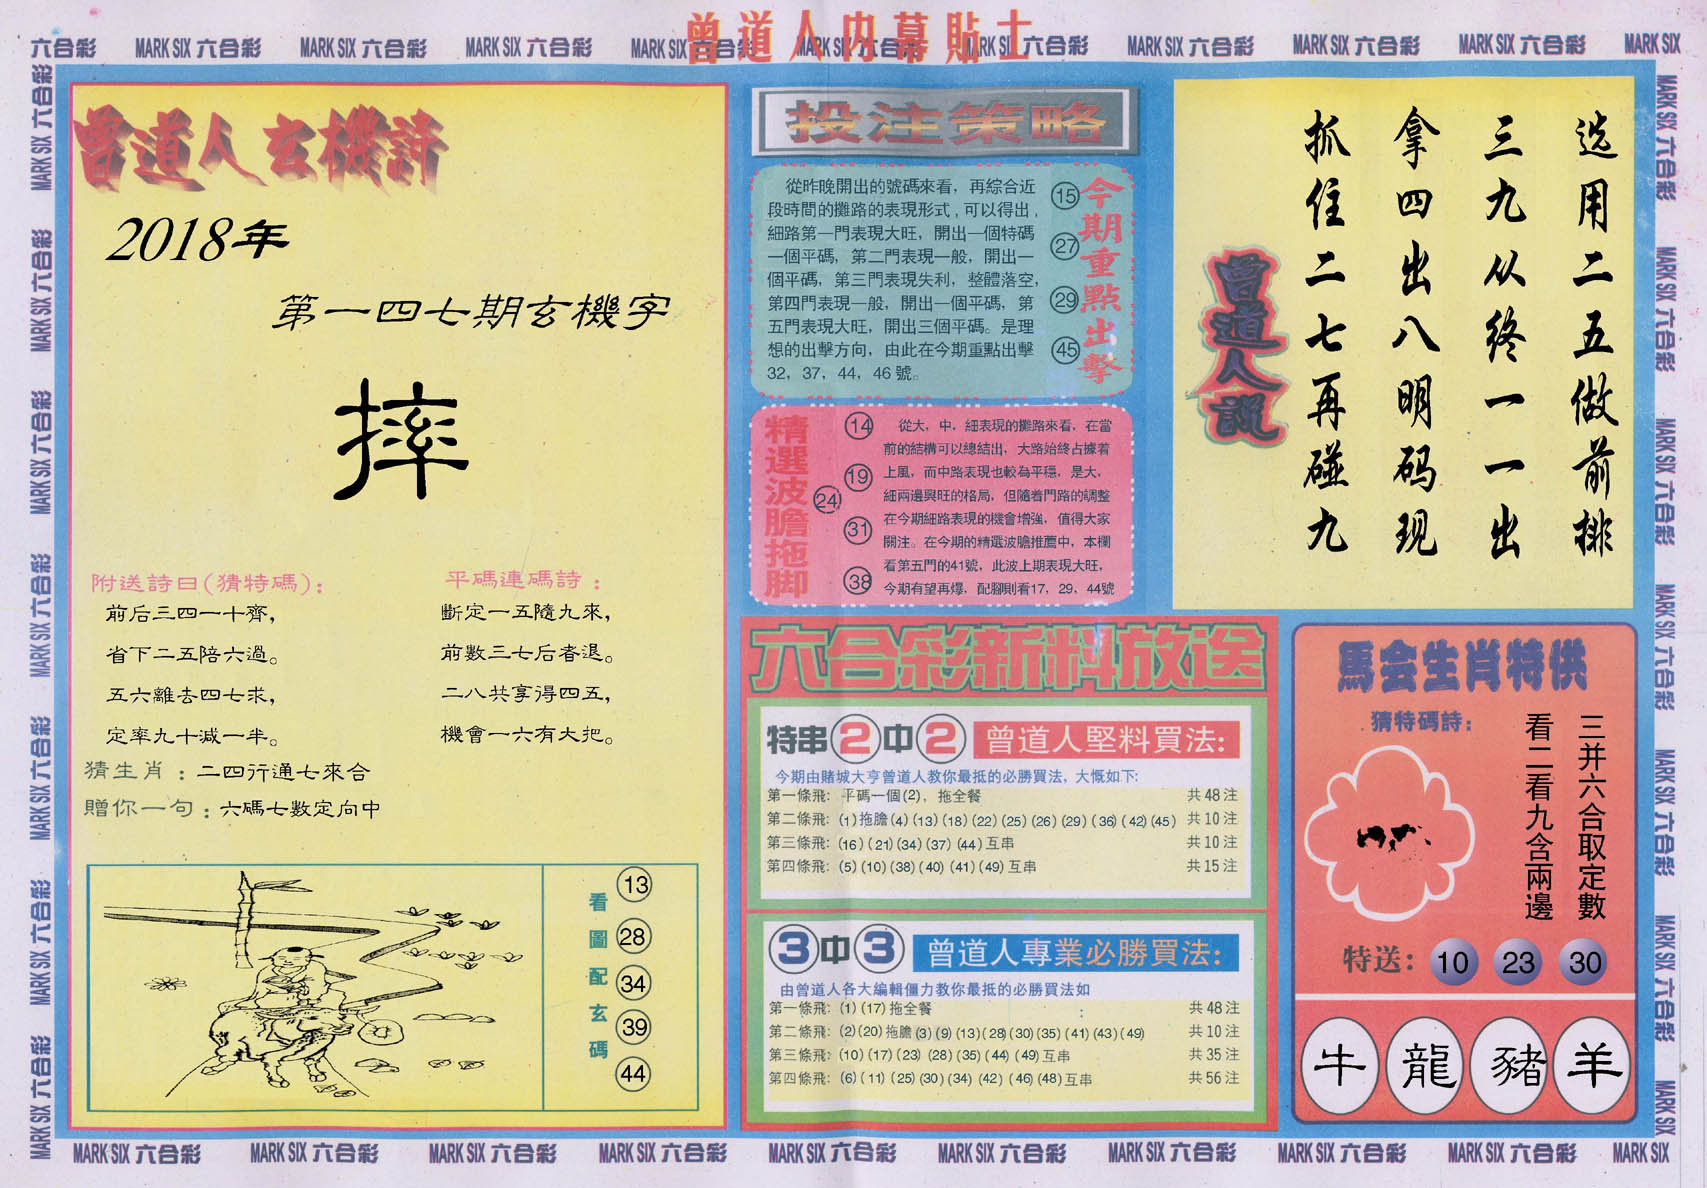 曾道人内幕貼士
六合彩 MARK SIX 六合彩 MARK SIX 六合彩 MARK SIX 六合彩 MARK SIX 六合彩 MARK SIX 六合彩 MARK SIX 六合彩 MARK SIX 六合彩 MARK SIX 六合彩 MARK SIX 六合彩 MARK SIX
曾道人玄機詩
2018年
第一四七期玄機字
摔
附送詩曰(猜特碼):
前后三四一十齊,
省下二五陪六過。
五六離去四七求,
定率九十減一半。
平碼連碼詩:
斷定一五隨九來,
前數三七后者退。
二八共享得四五,
機會一六有大把。
猜生肖:二四行通七來合
贈你一句:六碼七數定向中
看圖配玄碼
13
28
34
39
44
投注策略
從昨晚開出的號碼來看,再綜合近
段時間的攤路的表現形式,可以得出,
細路第一門表現大旺,開出一個特碼
一個平碼,第二門表現一般,開出一
個平碼,第三門表現失利,整體落空,
第四門表現一般,開出一個平碼,第
五門表現大旺,開出三個平碼。是理
想的出擊方向,由此在今期重點出擊
32,37,44,46號。
15
27
29
45
今期重點出擊
精選波膽拖脚
14
19
24
31
38
從大,中,細表現的攤路來看,在當
前的結構可以總結出,大路始終占據着
上風,而中路表現也較為平穩,是大,
細兩邊興旺的格局,但隨着門路的調整
在今期細路表現的機會增強,值得大家
關注。在今期的精選波膽推薦中,本欄
看第五門的41號,此波上期表現大旺,
今期有望再爆,配腳則看17,29,44號
六合彩新料放送
特串2中2 曾道人堅料買法:
今期由賭城大亨曾道人教你最抵的必勝買法,大慨如下:
第一條飛: 平碼一個(2),拖全餐 共48注
第二條飛: (1)拖膽(4)(13)(18)(22)(25)(26)(29)(36)(42)(45) 共10注
第三條飛: (16)(21)(34)(37)(44)互串 共10注
第四條飛: (5)(10)(38)(40)(41)(49)互串 共15注
3中3 曾道人專業必勝買法:
由曾道人各大編輯僵力教你最抵的必勝買法如
第一條飛: (1)(17)拖全餐 共48注
第二條飛: (2)(20)拖膽(3)(9)(13)(28)(30)(35)(41)(43)(49) 共10注
第三條飛: (10)(17)(23)(28)(35)(44)(49)互串 共35注
第四條飛: (6)(11)(25)(30)(34)(42)(46)(48)互串 共56注
选用二五做前排
三九从终一一出
拿四出八明码现
抓住二七再碰九
曾道人説
馬会生肖特供
猜特碼詩:
三并六合取定數
看二看九含兩邊
特送: 10 23 30
牛 龍 豬 羊
MARK SIX 六合彩 MARK SIX 六合彩 MARK SIX 六合彩 MARK SIX 六合彩 MARK SIX 六合彩 MARK SIX 六合彩 MARK SIX 六合彩
MARK SIX 六合彩 MARK SIX 六合彩 MARK SIX 六合彩 MARK SIX 六合彩 MARK SIX 六合彩 MARK SIX 六合彩 MARK SIX
MARK SIX 六合彩 MARK SIX 六合彩 MARK SIX 六合彩 MARK SIX 六合彩 MARK SIX 六合彩 MARK SIX 六合彩 MARK SIX 六合彩 MARK SIX 六合彩 MARK SIX 六合彩 MARK SIX